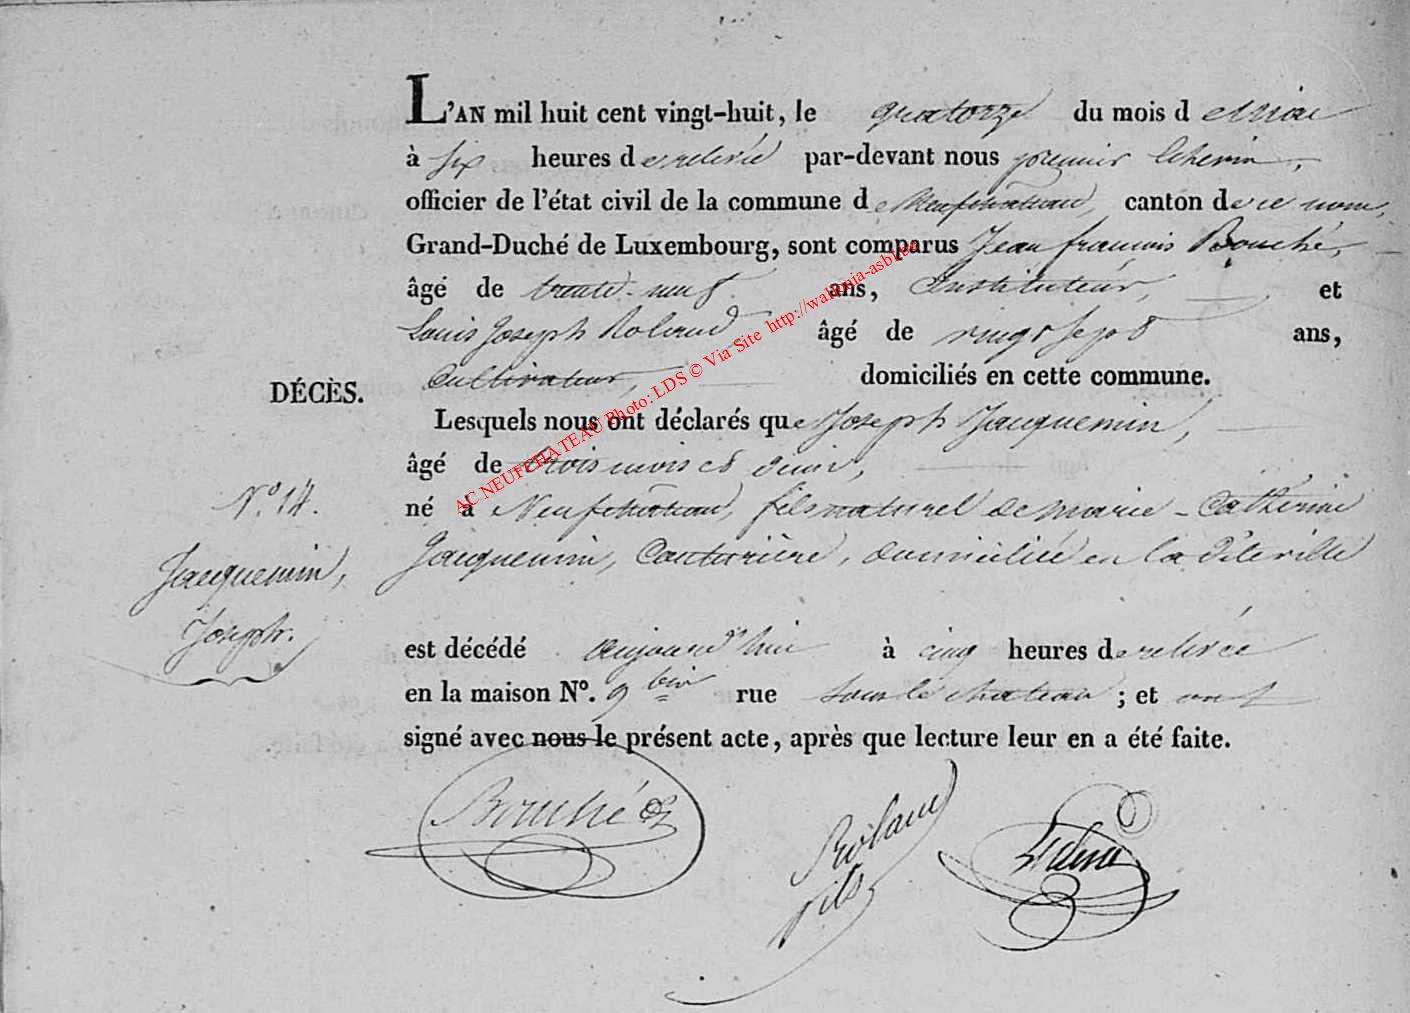 L'AN mil huit cent vingt-huit, le quatorze du mois d
à six heures de relevée par-devant nous premier Echevin,
officier de l'état civil de la commune de Neufchateau, canton de ce nom,
Grand-Duché de Luxembourg, sont comparus Jean françois Bouché,
âgé de trente-neuf ans, Instituteur, et
Louis Joseph Roland âgé de vingt sept ans,
Cultivateur, domiciliés en cette commune.
DÉCÈS.
Lesquels nous ont déclarés que Joseph Jacquemin,
âgé de trois mois et demi,
N.º 14.
né à Neufchateau, fils naturel de Marie-Catherine
Jacquemin, Couturière, domiciliée en la dite ville
Jacquemin,
Joseph.
est décédé aujourd'hui à cinq heures de relevée
en la maison Nº. 9 bis rue sous le chateau ; et ont
signé avec nous le présent acte, après que lecture leur en a été faite.
Bouché
Roland
fils
AC NEUFCHATEAU Photo: LDS © Via Site http://wallonia-asbl.be